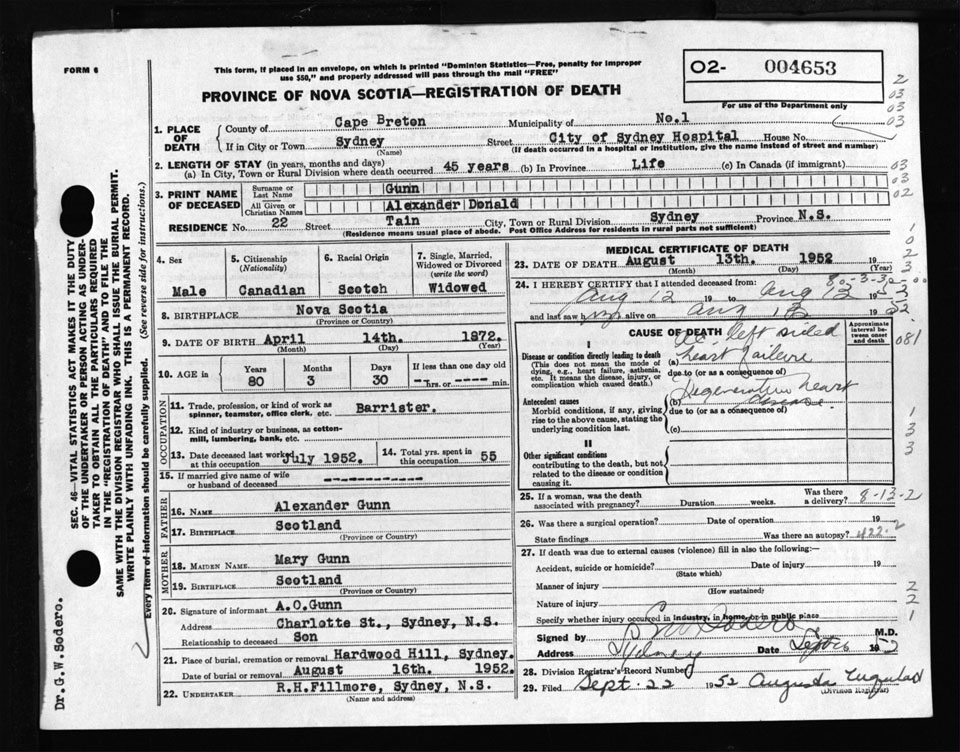 FORM 6
This form, if placed in an envelope, on which is printed "Dominion Statistics—Free, penalty for improper
use $50," and properly addressed will pass through the mail "FREE"
O2- 004653
For use of the Department only
PROVINCE OF NOVA SCOTIA—REGISTRATION OF DEATH
2
03
03
03
1. PLACE OF DEATH
County of Cape Breton Municipality of No.1
If in City or Town Sydney Street City of Sydney Hospital House No.
(Name) (If death occurred in a hospital or institution, give the name instead of street and number)
2. LENGTH OF STAY (in years, months and days)
(a) In City, Town or Rural Division where death occurred 45 years (b) In Province Life (c) In Canada (if immigrant)
03
03
02
3. PRINT NAME OF DECEASED
Surname or Last Name Gunn
All Given or Christian Names Alexander Donald
RESIDENCE No. 22 Street Tain City, Town or Rural Division Sydney Province N.S.
(Residence means usual place of abode. Post Office Address for residents in rural parts not sufficient)
4. Sex
Male
5. Citizenship
(Nationality)
Canadian
6. Racial Origin
Scotch
7. Single, Married,
Widowed or Divorced
(write the word)
Widowed
8. BIRTHPLACE Nova Scotia
(Province or Country)
9. DATE OF BIRTH April 14th. 1872.
(Month) (Day) (Year)
10. AGE in
Years 80
Months 3
Days 30
If less than one day old
hrs. or min.
OCCUPATION
11. Trade, profession, or kind of work as
spinner, teamster, office clerk, etc. Barrister.
12. Kind of industry or business, as cotton-
mill, lumbering, bank, etc.
13. Date deceased last worked
at this occupation July 1952.
14. Total yrs. spent in
this occupation 55
15. If married give name of wife
or husband of deceased
FATHER
16. NAME Alexander Gunn
17. BIRTHPLACE Scotland
(Province or Country)
MOTHER
18. MAIDEN NAME Mary Gunn
19. BIRTHPLACE Scotland
(Province or Country)
20. Signature of informant A.O.Gunn
Address Charlotte St., Sydney, N.S.
Relationship to deceased Son
21. Place of burial, cremation or removal Hardwood Hill, Sydney.
Date of burial or removal August 16th. 1952.
22. UNDERTAKER R.H.Fillmore, Sydney, N.S.
(Name and address)
MEDICAL CERTIFICATE OF DEATH
23. DATE OF DEATH August 13th. 1952
(Month) (Day) (Year)
24. I HEREBY CERTIFY that I attended deceased from:
Aug 12 19 to Aug 13 19
and last saw him alive on Aug 13 1952
CAUSE OF DEATH
Approximate
interval be-
tween onset
and death
I
Disease or condition directly leading to death
(This does not mean the mode of
dying, e.g., heart failure, asthenia,
etc. It means the disease, injury, or
complication which caused death.)
(a) left sided
heart failure
due to (or as a consequence of)
Antecedent causes
Morbid conditions, if any, giving
rise to the above cause, stating the
underlying condition last.
(b) Degenerative heart
disease
due to (or as a consequence of)
(c)
II
Other significant conditions
contributing to the death, but not
related to the disease or condition
causing it.
081
25. If a woman, was the death
associated with pregnancy? Duration weeks. Was there
a delivery? 8-13-2
26. Was there a surgical operation? Date of operation 19
State findings Was there an autopsy? 422.2
27. If death was due to external causes (violence) fill in also the following:—
Accident, suicide or homicide? Date of injury 19
(State which)
Manner of injury
(How sustained)
Nature of injury
Specify whether injury occurred in industry, in home, or in public place
Signed by Sodero M.D.
Address Sydney Date
28. Division Registrar's Record Number
29. Filed Sept. 22 1952 Augusta
(Division Registrar)
SEC. 46—VITAL STATISTICS ACT MAKES IT THE DUTY
OF THE UNDERTAKER OR PERSON ACTING AS UNDER-
TAKER TO OBTAIN ALL THE PARTICULARS REQUIRED
IN THE "REGISTRATION OF DEATH" AND TO FILE THE
SAME WITH THE DIVISION REGISTRAR WHO SHALL ISSUE THE BURIAL PERMIT.
WRITE PLAINLY WITH UNFADING INK. THIS IS A PERMANENT RECORD.
Every item of information should be carefully supplied. (See reverse side for instructions.)
Dr.G.W.Sodero.